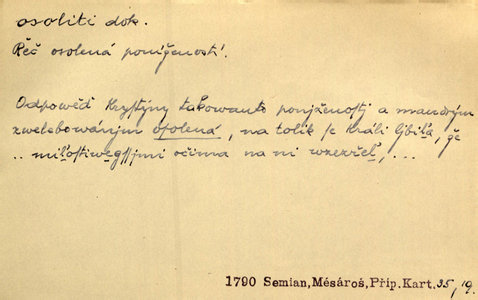 osoliti dok.
Řěč osolená ponížeností.
Odpowěď Krystýny takowauto ponjženostj a maudrým
zwelebowánjm osolená, na tolik se Králi ljbila, že
.. milostiwegssjmi očima na ni wzezřel, ...
1790 Semian, Mésároš, Příp. Kart. 35, 19.